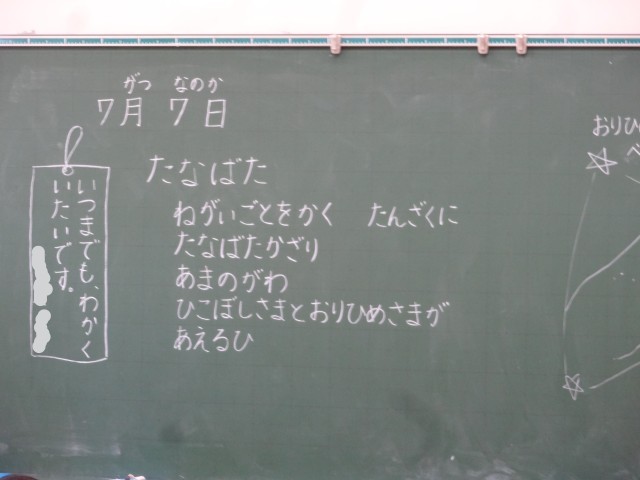 がつ なのか
7月 7日
たなばた
ねがいごとをかく たんざくに
たなばたかざり
あまのがわ
ひこぼしさまとおりひめさまが
あえるひ
いつまでも、わかく
いたいです。